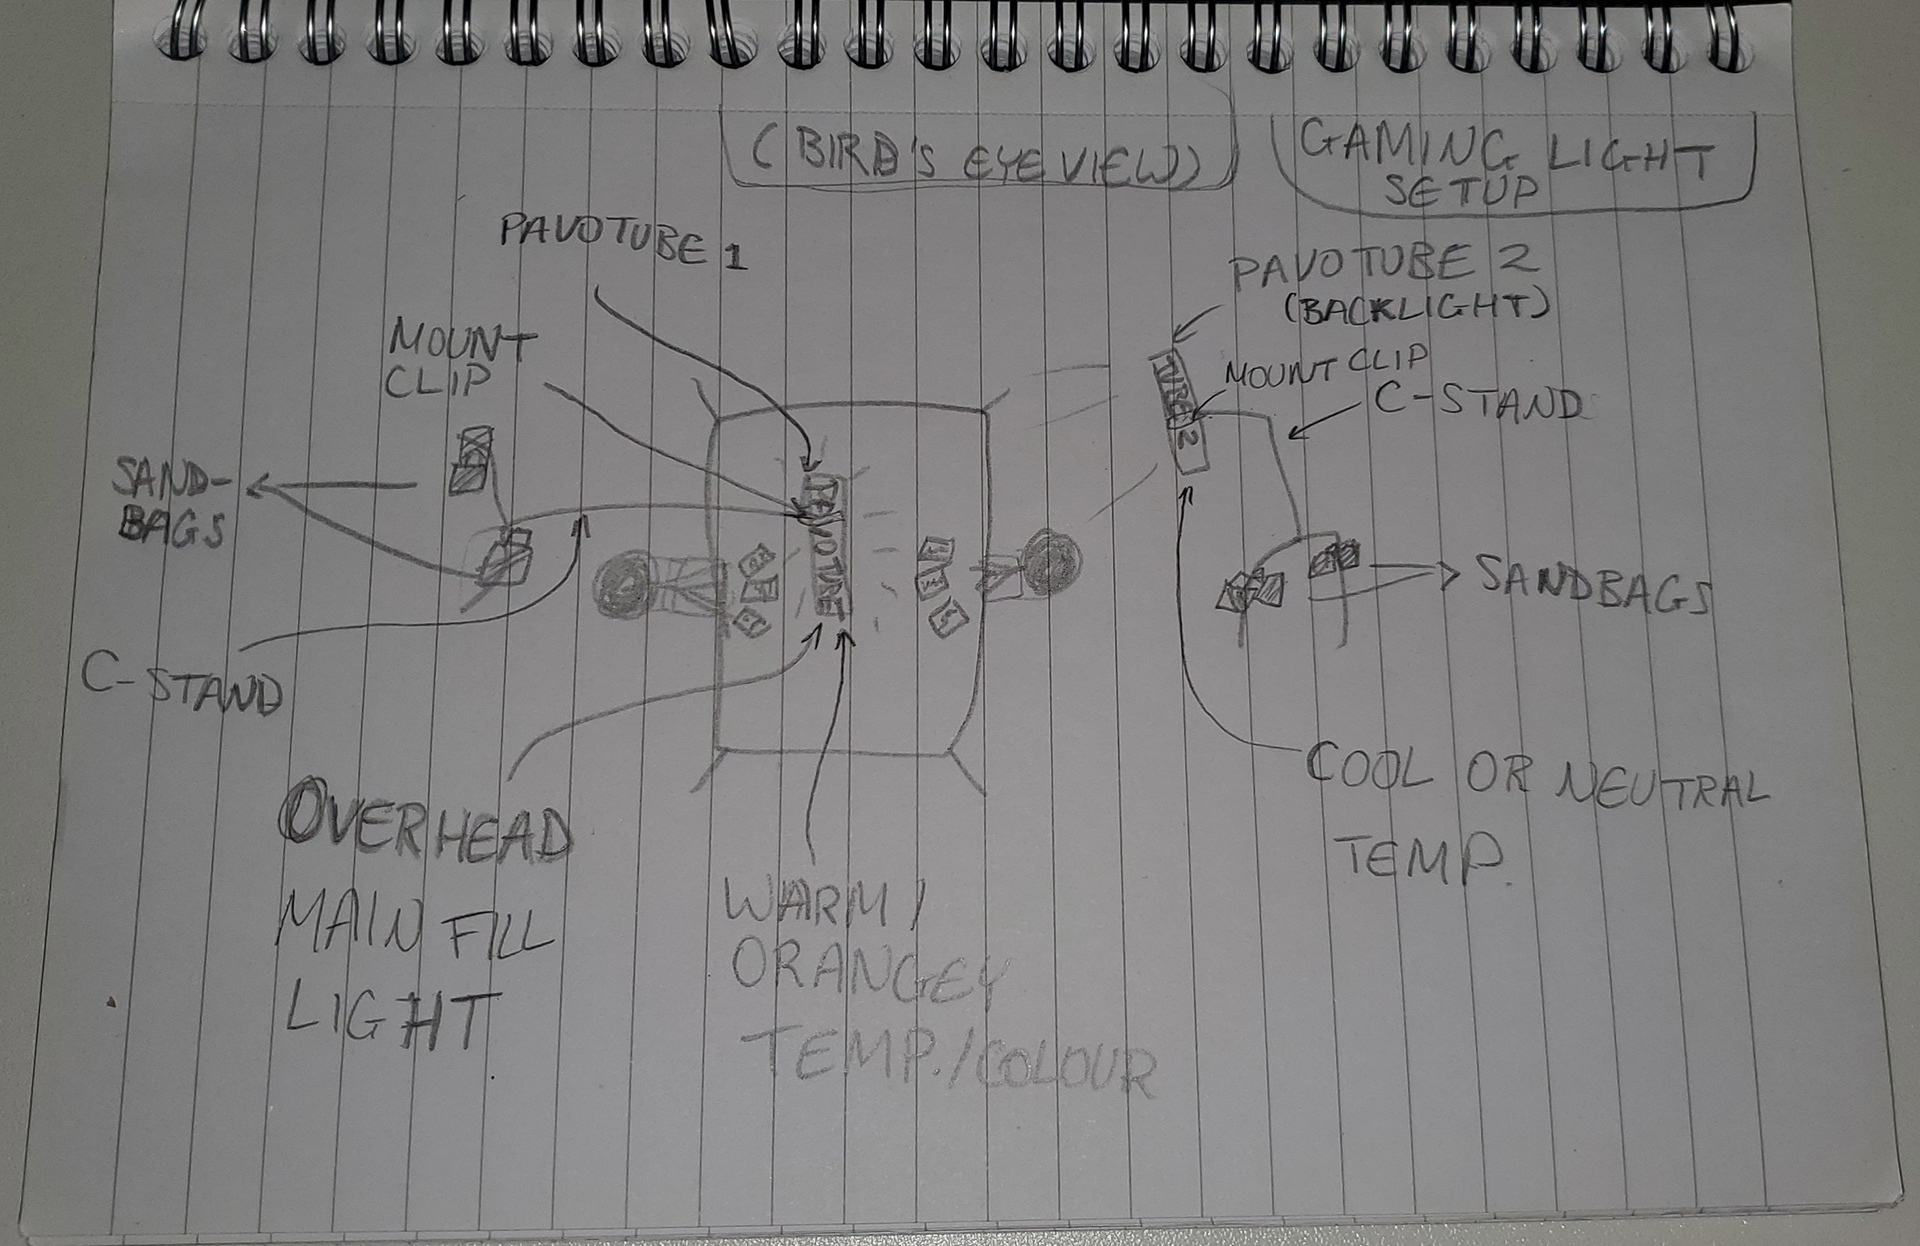 (BIRD'S EYE VIEW)
GAMING LIGHT
SETUP
PAVOTUBE 1
PAVOTUBE 2
(BACKLIGHT)
MOUNT
CLIP
TUBE 2
MOUNT CLIP
C-STAND
SAND-
BAGS
SANDBAGS
C-STAND
OVERHEAD
MAIN FILL
LIGHT
WARM/
ORANGEY
TEMP./COLOUR
COOL OR NEUTRAL
TEMP.